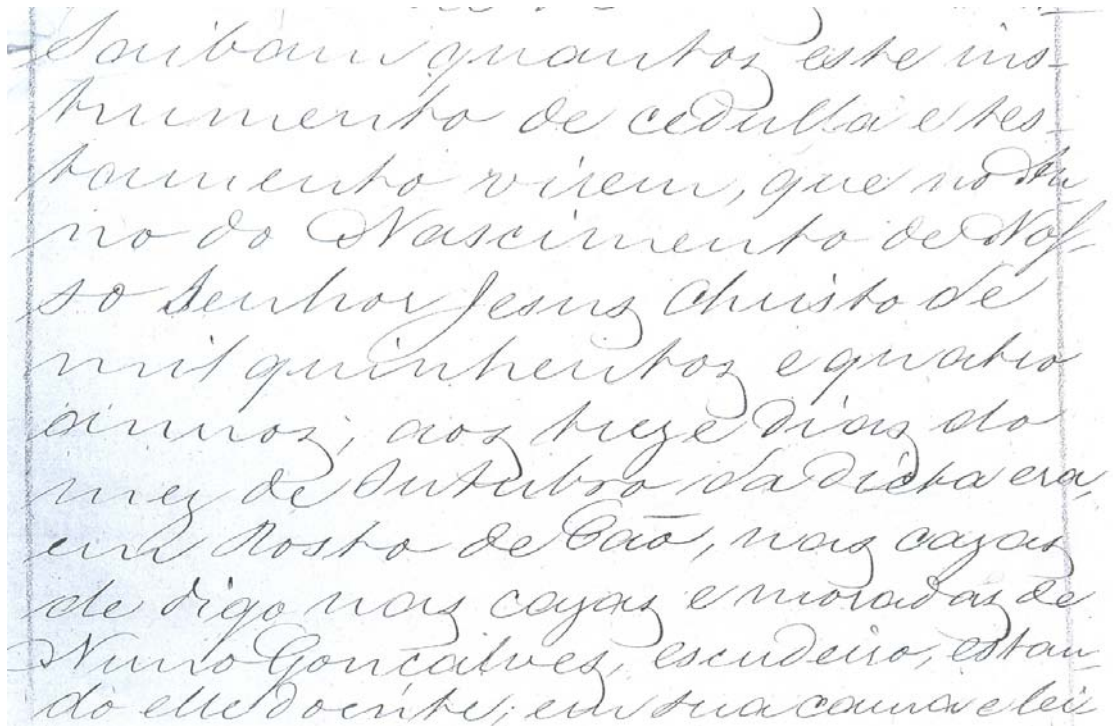 Saibam quantos este ins-
trumento de cedulla e tes-
tamento virem, que no An-
no do Nascimento de Nos-
so Senhor Jesus Christo de
mil quinhentos e quatro
annos, aos treze dias do
mez de Outubro da dicta era,
em Rosto de Cão, nas cazas
de digo nas cazas e moradas de
Nuno Gonçalves, escudeiro, estan-
do elle doente, em sua cama e lei